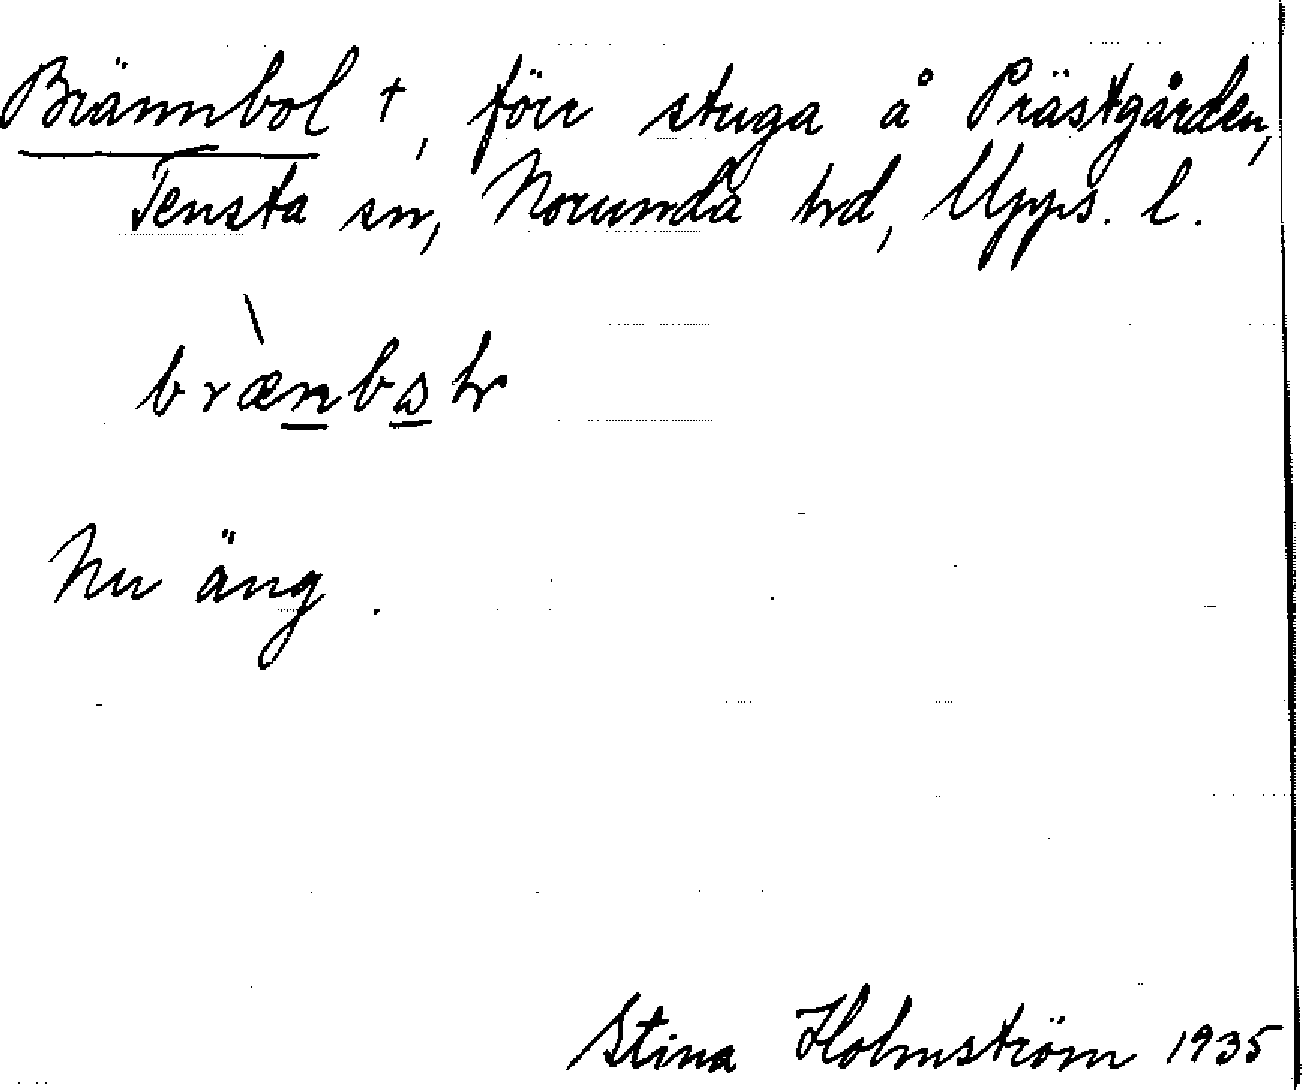 Brännbol †, förr stuga å Prästgården,
Tensta sn, Norunda hrd, Upps. l.
Nu äng.
Stina Holmström 1935